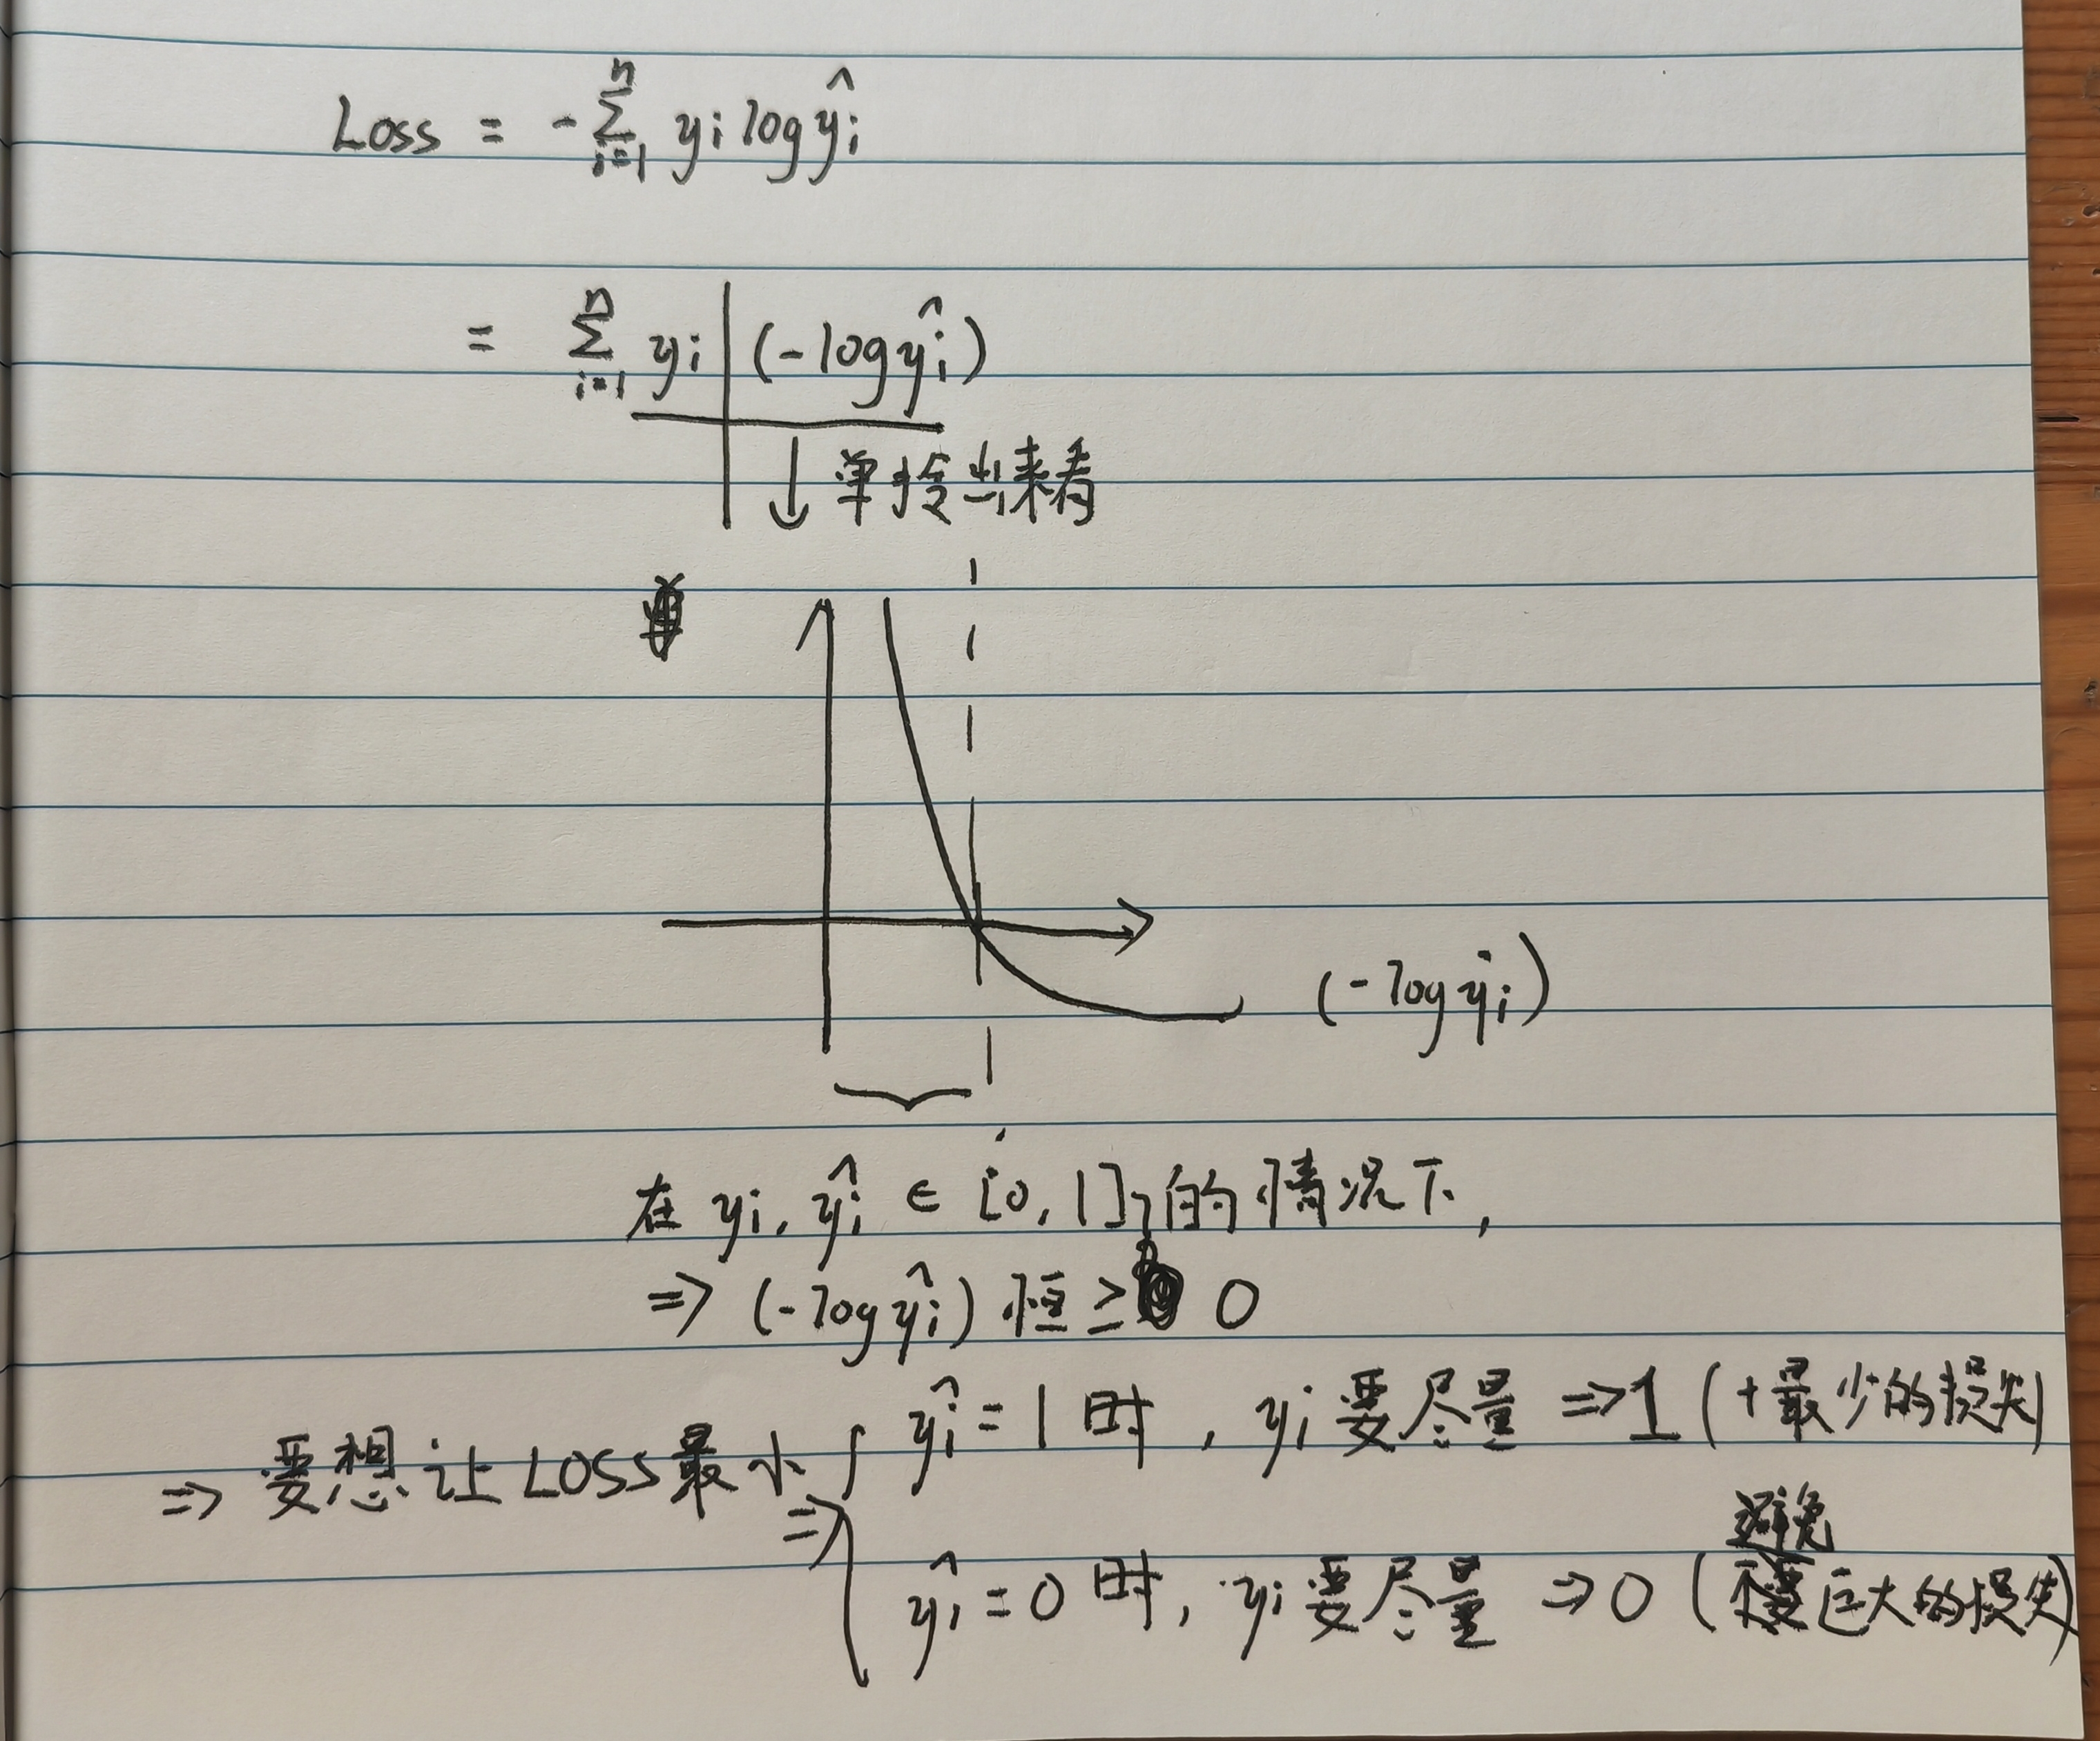 Loss = -∑ⁿᵢ₌₁ yi log ŷi
= ∑ⁿᵢ₌₁ yi | (-log ŷi)
↓ 单拎出来看
(-log ŷi)
在 yi, ŷi ∈ [0, 1] 的情况下,
=> (-log ŷi) 恒 ≥ 0
=> 要想让 LOSS 最小 => { ŷi = 1 时, yi 要尽量 => 1 (+最少的损失)
ŷi = 0 时, yi 要尽量 => 0 (避免巨大的损失)